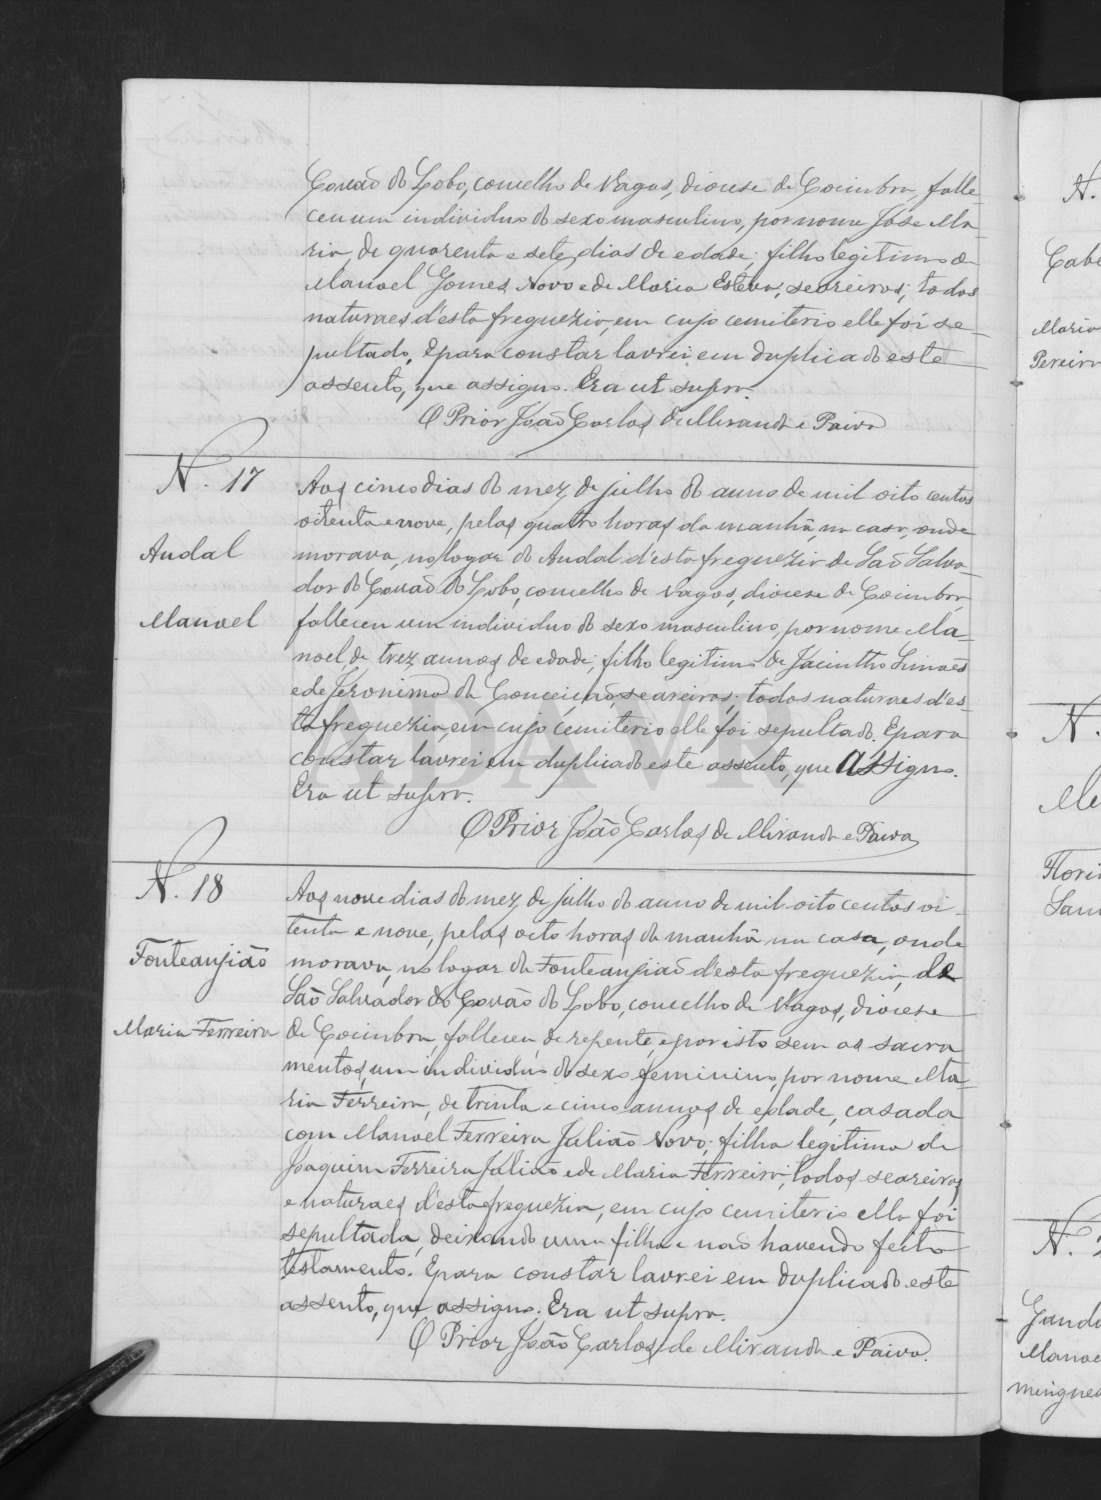 Covão do Lobo, concelho de Vagos, diocese de Coimbra, falle-
ceu um individuo do sexo masculino, por nome José Ma-
ria, de quarenta e sete dias de edade, filho legitimo de
Manoel Gomes Novo e de Maria Esteva, seareiros, todos
naturaes d'esta freguezia, em cujo cemiterio elle foi se-
pultado. E para constar lavrei em duplicado este
assento, que assigno. Era ut supra.
O Prior João Carlos de Miranda e Paiva
N. 17
Andal
Manoel
Aos cinco dias do mez de julho do anno de mil oito centos
oitenta e nove, pelas quatro horas da manhã, na casa, onde
morava, no logar do Andal d'esta freguezia de São Salva-
dor do Covão do Lobo, concelho de Vagos, diocese de Coimbra,
falleceu um individuo do sexo masculino, por nome Ma-
noel, de trez annos de edade, filho legitimo de Jacintho Simões
e de Jeronima da Conceição, seareiros, todos naturaes d'es-
ta freguezia, em cujo cemiterio elle foi sepultado. E para
constar lavrei em duplicado este assento, que assigno.
Era ut supra.
O Prior João Carlos de Miranda e Paiva
N. 18
Fonteanjião
Maria Ferreira
Aos nove dias do mez de julho do anno de mil oito centos oi-
tenta e nove, pelas oito horas da manhã na casa, onde
morava, no logar da Fonteanjião d'esta freguezia, de
São Salvador do Covão do Lobo, concelho de Vagos, diocese
de Coimbra, falleceu, de repente, e por isto sem os sacra
mentos, um individuo do sexo feminino, por nome Ma-
ria Ferreira, de trinta e cinco annos de edade, casada
com Manoel Ferreira Julião Novo, filha legitima de
Joaquim Ferreira Julião e de Maria Ferreira, todos seareiros
e naturaes d'esta freguezia, em cujo cemiterio ella foi
sepultada, deixando uma filha e não havendo feito
testamento. E para constar lavrei em duplicado este
assento, que assigno. Era ut supra.
O Prior João Carlos de Miranda e Paiva.
ADAVR
N.
Maria
Pereira
N.
N.